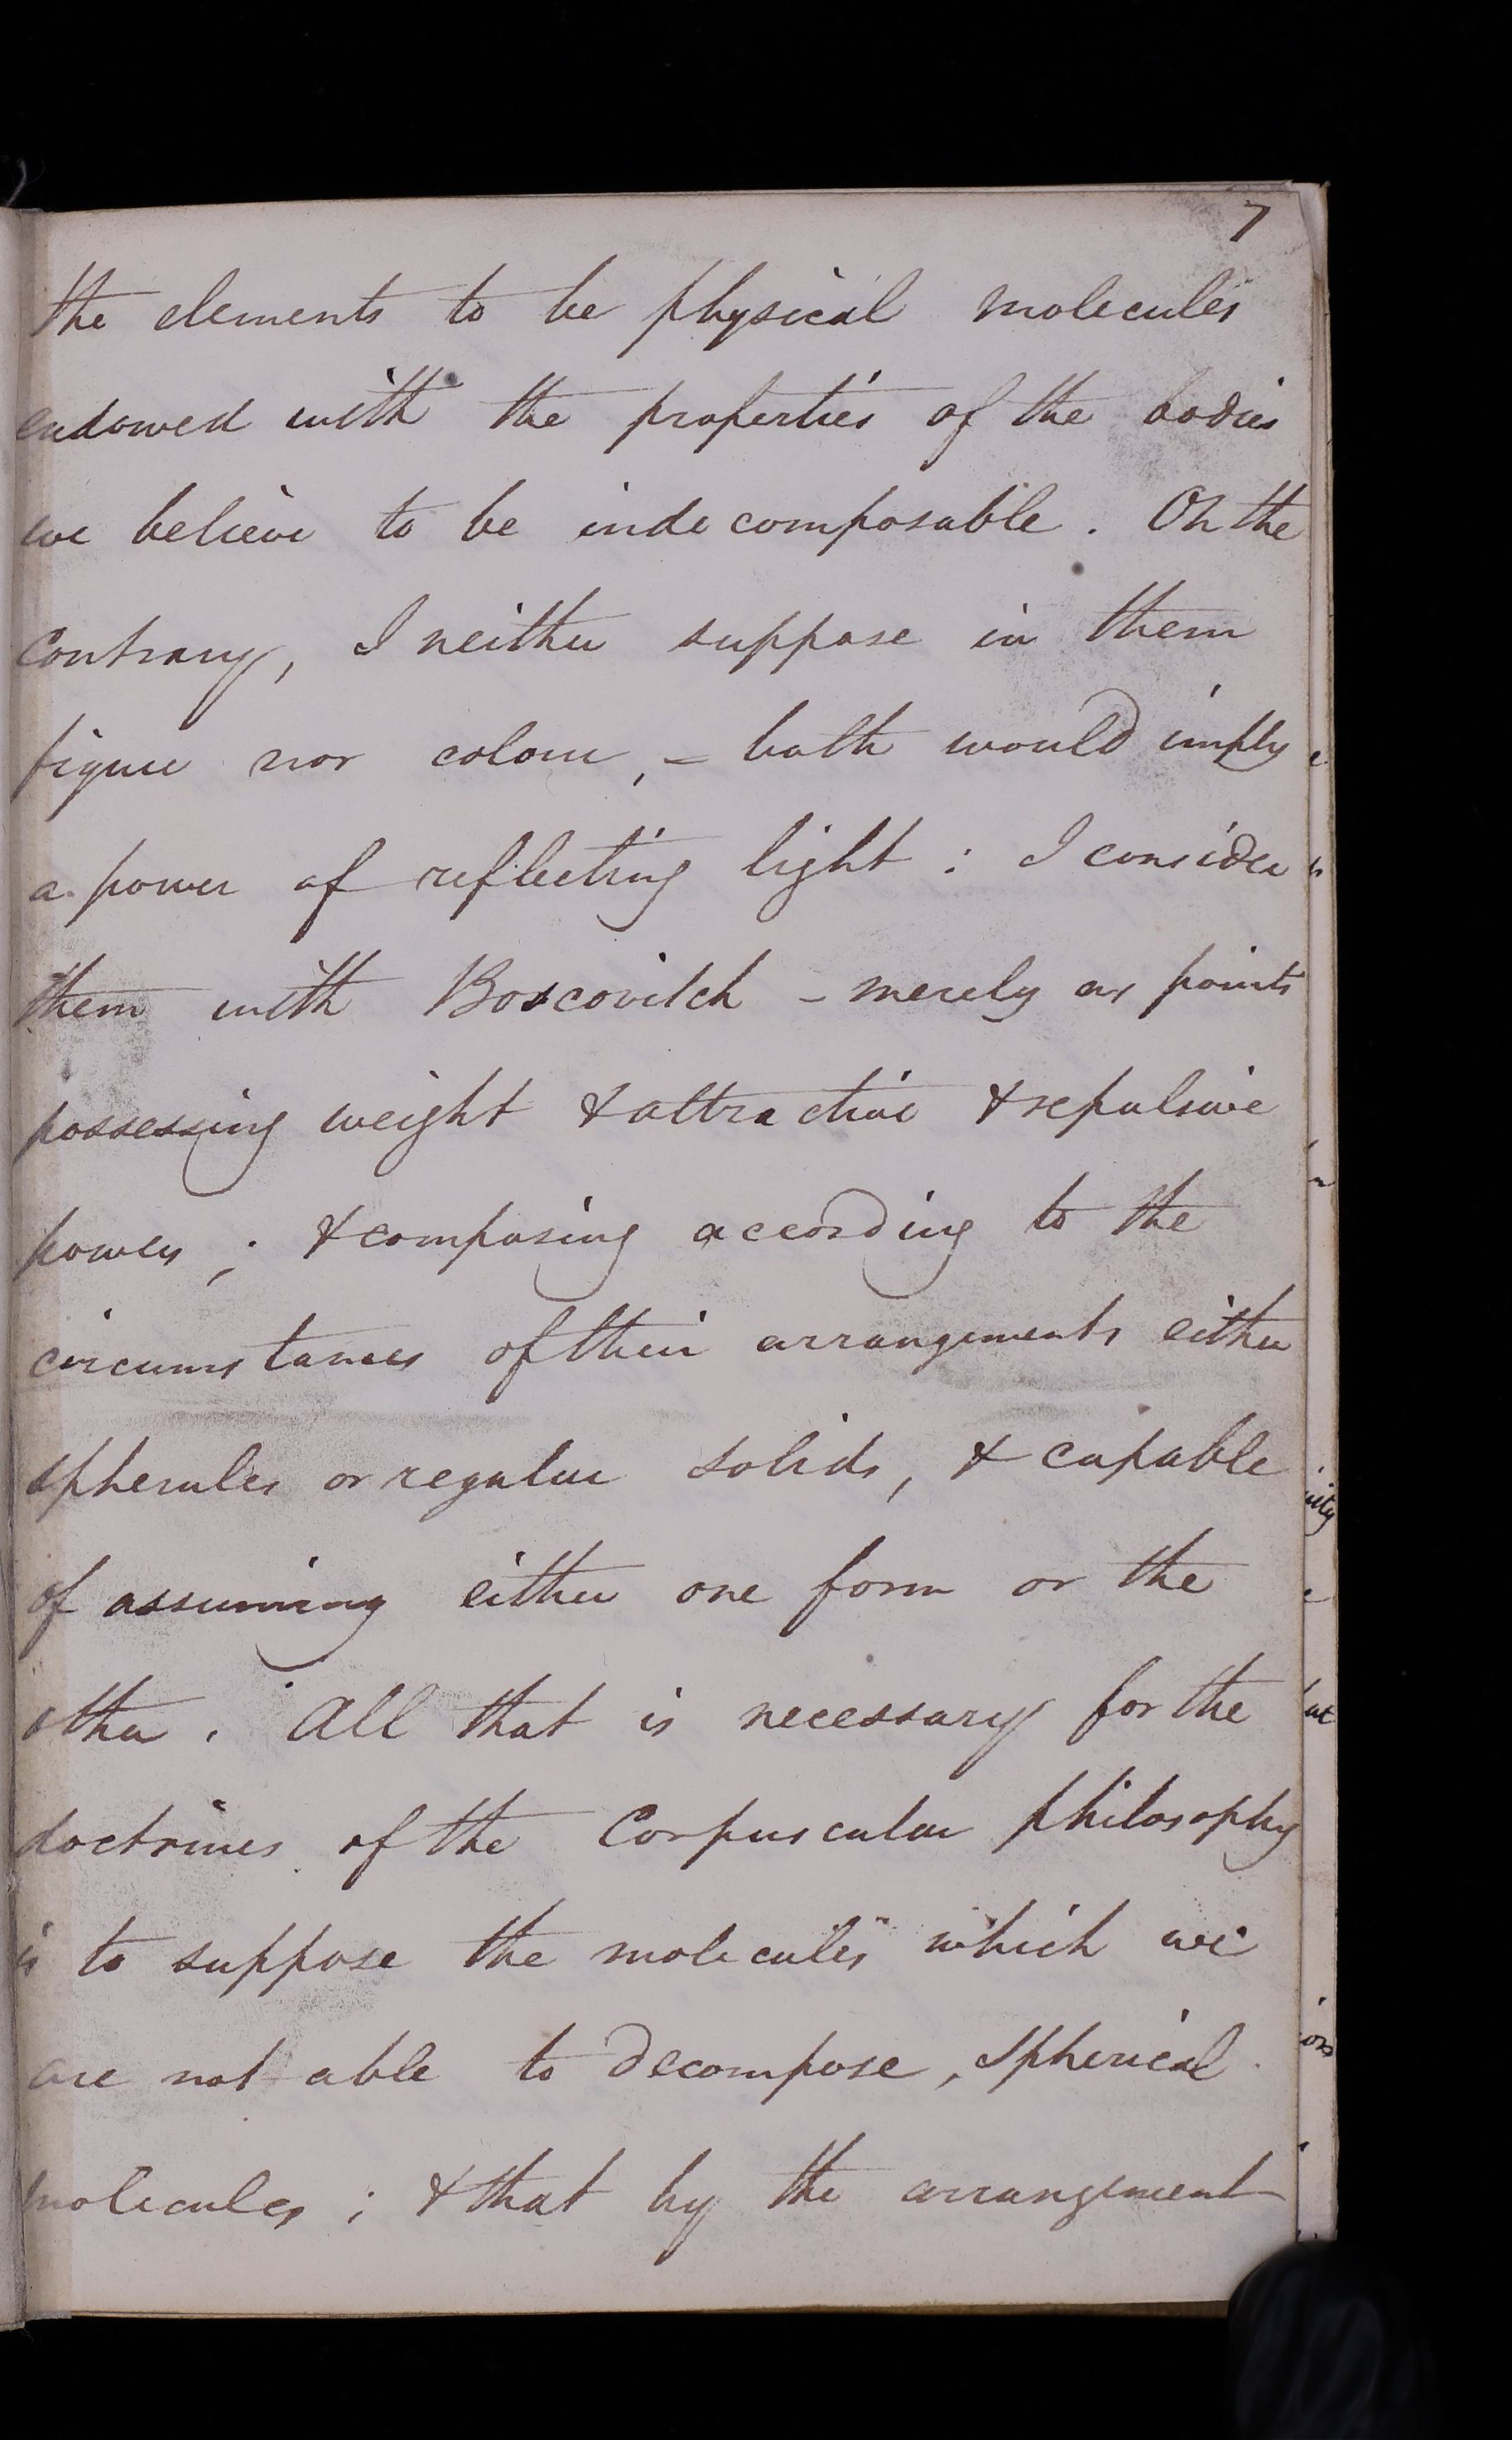 7
the elements to be physical molecules
endowed with the properties of the bodies
we believe to be indecomposable. On the
contrary, I neither suppose in them
figure nor colour, - both would imply
a power of reflecting light: I consider
them with Boscovitch - merely as points
possessing weight & attractive & repulsive
powers; & composing according to the
circumstances of their arrangements either
spherules or regular solids, & capable
of assuming either one form or the
other. All that is necessary for the
doctrines of the Corpuscular philosophy
is to suppose the molecules which we
are not able to decompose, spherical
molecules; & that by the arrangement